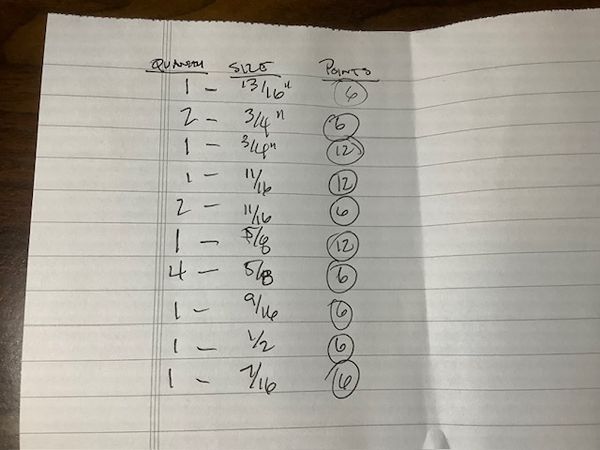 QUANTITY SIZE POINTS
1 - 13/16" 6
2 - 3/4" 6
1 - 3/4" 12
1 - 11/16 12
2 - 11/16 6
1 - 5/8 12
4 - 5/8 6
1 - 9/16 6
1 - 1/2 6
1 - 7/16 6